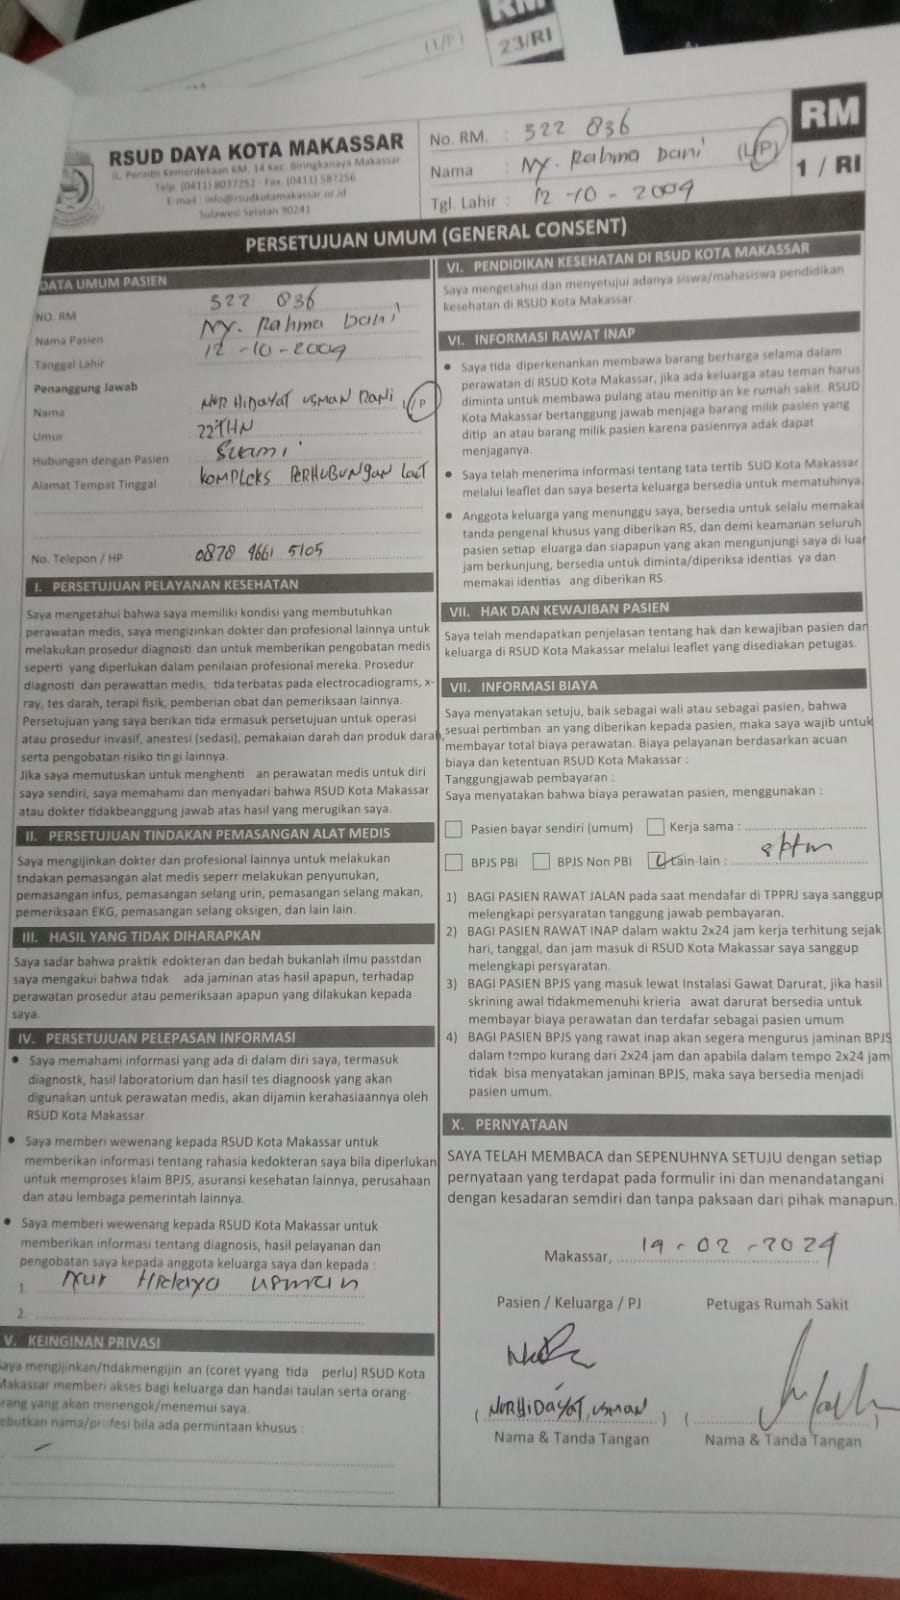 RM
23/RI
(L/P)
RSUD DAYA KOTA MAKASSAR
JL. Perintis Kemerdekaan KM. 14 Kec. Biringkanaya Makassar
Telp. (0411) 8037252 - Fax. (0411) 587256
E-mail : info@rsudkotamakassar.or.id
Sulawesi Selatan 90241
No. RM. : 322 036
Nama : NY. Rahma Dani (L/P)
Tgl. Lahir : 12 -10 - 2009
RM
1 / RI
PERSETUJUAN UMUM (GENERAL CONSENT)
DATA UMUM PASIEN
NO. RM : 322 036
Nama Pasien : NY. Rahma Dani
Tanggal Lahir : 12 -10 -2009
Penanggung Jawab
Nama : NUR HIDAYAT USMAN DANI L/P
Umur : 22 THN
Hubungan dengan Pasien : Suami
Alamat Tempat Tinggal : KOMPLEKS PERHUBUNGAN LAUT
No. Telepon / HP : 0878 4661 5105
I. PERSETUJUAN PELAYANAN KESEHATAN
Saya mengetahui bahwa saya memiliki kondisi yang membutuhkan
perawatan medis, saya mengizinkan dokter dan profesional lainnya untuk
melakukan prosedur diagnosti dan untuk memberikan pengobatan medis
seperti yang diperlukan dalam penilaian profesional mereka. Prosedur
diagnosti dan perawattan medis, tida terbatas pada electrocadiograms, x-
ray, tes darah, terapi fisik, pemberian obat dan pemeriksaan lainnya.
Persetujuan yang saya berikan tida ermasuk persetujuan untuk operasi
atau prosedur invasif, anestesi (sedasi), pemakaian darah dan produk darah,
serta pengobatan risiko tin gi lainnya.
Jika saya memutuskan untuk menghenti an perawatan medis untuk diri
saya sendiri, saya memahami dan menyadari bahwa RSUD Kota Makassar
atau dokter tidakbeanggung jawab atas hasil yang merugikan saya.
II. PERSETUJUAN TINDAKAN PEMASANGAN ALAT MEDIS
Saya mengijinkan dokter dan profesional lainnya untuk melakukan
tndakan pemasangan alat medis seperr melakukan penyunukan,
pemasangan infus, pemasangan selang urin, pemasangan selang makan,
pemeriksaan EKG, pemasangan selang oksigen, dan lain lain.
III. HASIL YANG TIDAK DIHARAPKAN
Saya sadar bahwa praktik edokteran dan bedah bukanlah ilmu passtdan
saya mengakui bahwa tidak ada jaminan atas hasil apapun, terhadap
perawatan prosedur atau pemeriksaan apapun yang dilakukan kepada
saya.
IV. PERSETUJUAN PELEPASAN INFORMASI
• Saya memahami informasi yang ada di dalam diri saya, termasuk
diagnostk, hasil laboratorium dan hasil tes diagnoosk yang akan
digunakan untuk perawatan medis, akan dijamin kerahasiaannya oleh
RSUD Kota Makassar.
• Saya memberi wewenang kepada RSUD Kota Makassar untuk
memberikan informasi tentang rahasia kedokteran saya bila diperlukan
untuk memproses klaim BPJS, asuransi kesehatan lainnya, perusahaan
dan atau lembaga pemerintah lainnya.
• Saya memberi wewenang kepada RSUD Kota Makassar untuk
memberikan informasi tentang diagnosis, hasil pelayanan dan
pengobatan saya kepada anggota keluarga saya dan kepada :
1. Nur Hidaya usman
2.
V. KEINGINAN PRIVASI
Saya mengijinkan/tidakmengijin an (coret yyang tida perlu) RSUD Kota
Makassar memberi akses bagi keluarga dan handai taulan serta orang-
orang yang akan menengok/menemui saya.
sebutkan nama/profesi bila ada permintaan khusus :
VI. PENDIDIKAN KESEHATAN DI RSUD KOTA MAKASSAR
Saya mengetahui dan menyetujui adanya siswa/mahasiswa pendidikan
kesehatan di RSUD Kota Makassar.
VI. INFORMASI RAWAT INAP
• Saya tida diperkenankan membawa barang berharga selama dalam
perawatan di RSUD Kota Makassar, jika ada keluarga atau teman harus
diminta untuk membawa pulang atau menitip an ke rumah sakit. RSUD
Kota Makassar bertanggung jawab menjaga barang milik pasien yang
ditip an atau barang milik pasien karena pasiennya adak dapat
menjaganya.
• Saya telah menerima informasi tentang tata tertib SUD Kota Makassar
melalui leaflet dan saya beserta keluarga bersedia untuk mematuhinya.
• Anggota keluarga yang menunggu saya, bersedia untuk selalu memakai
tanda pengenal khusus yang diberikan RS, dan demi keamanan seluruh
pasien setiap eluarga dan siapapun yang akan mengunjungi saya di luar
jam berkunjung, bersedia untuk diminta/diperiksa identias ya dan
memakai identias ang diberikan RS.
VII. HAK DAN KEWAJIBAN PASIEN
Saya telah mendapatkan penjelasan tentang hak dan kewajiban pasien dan
keluarga di RSUD Kota Makassar melalui leaflet yang disediakan petugas.
VII. INFORMASI BIAYA
Saya menyatakan setuju, baik sebagai wali atau sebagai pasien, bahwa
sesuai pertimban an yang diberikan kepada pasien, maka saya wajib untuk
membayar total biaya perawatan. Biaya pelayanan berdasarkan acuan
biaya dan ketentuan RSUD Kota Makassar :
Tanggungjawab pembayaran :
Saya menyatakan bahwa biaya perawatan pasien, menggunakan :
Pasien bayar sendiri (umum) Kerja sama :
BPJS PBI BPJS Non PBI Lain-lain :
1) BAGI PASIEN RAWAT JALAN pada saat mendafar di TPPRJ saya sanggup
melengkapi persyaratan tanggung jawab pembayaran.
2) BAGI PASIEN RAWAT INAP dalam waktu 2x24 jam kerja terhitung sejak
hari, tanggal, dan jam masuk di RSUD Kota Makassar saya sanggup
melengkapi persyaratan.
3) BAGI PASIEN BPJS yang masuk lewat Instalasi Gawat Darurat, jika hasil
skrining awal tidakmemenuhi krieria awat darurat bersedia untuk
membayar biaya perawatan dan terdafar sebagai pasien umum
4) BAGI PASIEN BPJS yang rawat inap akan segera mengurus jaminan BPJS
dalam tempo kurang dari 2x24 jam dan apabila dalam tempo 2x24 jam
tidak bisa menyatakan jaminan BPJS, maka saya bersedia menjadi
pasien umum.
X. PERNYATAAN
SAYA TELAH MEMBACA dan SEPENUHNYA SETUJU dengan setiap
pernyataan yang terdapat pada formulir ini dan menandatangani
dengan kesadaran semdiri dan tanpa paksaan dari pihak manapun.
Makassar, 19 - 02 - 2024
Pasien / Keluarga / PJ Petugas Rumah Sakit
( NURHIDAYAT, USMAN ) ( )
Nama & Tanda Tangan Nama & Tanda Tangan